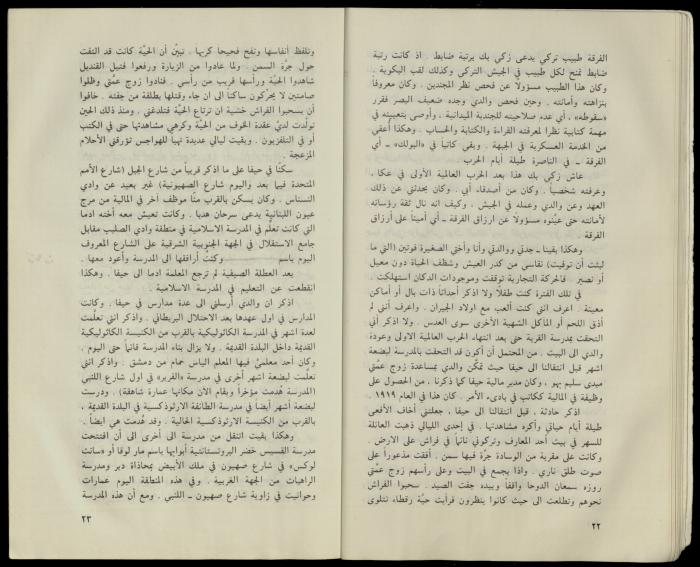 الفرقة طبيب تركي يدعى زكي بك برتبة ضابط . اذ كانت رتبة
ضابط تمنح لكل طبيب في الجيش التركي وكذلك لقب البكوية .
وكان هذا الطبيب مسؤولاً عن فحص نظر المجندين . وكان معروفاً
بنزاهته وأمانته . وحين فحص والدي وجده ضعيف البصر فقرر
«سقوطه» ، أي عدم صلاحيته للجندية الميدانية ، وأوصى بتعيينه في
مهمة كتابية نظرا لمعرفته القراءة والكتابة والحساب . وهكذا أعفي
من الخدمة العسكرية في الجبهة . وبقي كاتباً في «البولك» ـ أي
الفرقة ـ في الناصرة طيلة أيام الحرب
عاش زكي بك هذا بعد الحرب العالمية الأولى في عكا ،
وعرفته شخصياً . وكان من أصدقاء أبي . وكان يحدثني عن ذلك
العهد وعن والدي وعمله في الجيش ، وكيف انه نال ثقة رؤسائه
لأمانته حتى عيّنوه مسؤولاً عن ارزاق الفرقة ـ أي أمينا على أرزاق
الفرقة .
وهكذا بقينا ـ جدتي ووالدتي وأنا وأختي الصغيرة فوتين (التي ما
لبثت أن توفيت) نقاسي من كدر العيش وشظف الحياة دون معيل
أو نصير . فالحركة التجارية توقفت وموجودات الدكان استهلكت .
في تلك الفترة كنت طفلاً ولا اذكر أحداثاً ذات بال أو أماكن
معينة . اعرف انني كنت ألعب مع اولاد الجيران . واعرف أنني لم
أذق اللحم أو المآكل الشهية الأخرى سوى العدس . ولا اذكر أني
التحقت بمدرسة القرية حتى بعد انتهاء الحرب العالمية الاولى وعودة
والدي الى البيت . من المحتمل أن أكون قد التحقت بالمدرسة لبضعة
اشهر قبل انتقالنا الى حيفا حيث تمكّن والدي بمساعدة زوج عمّتي
ميدى سليم بهو ، وكان مدير مالية حيفا كما ذكرنا ، من الحصول على
وظيفة في المالية ككاتب في بادىء الأمر . كان هذا في العام ١٩١٩ .
اذكر حادثة ، قبل انتقالنا الى حيفا ، جعلتني أخاف الأفعى
طيلة أيام حياتي وأكره مشاهدتها . في إحدى الليالي ذهبت العائلة
للسهر في بيت أحد المعارف وتركوني نائماً في فراش على الارض .
وكانت على مقربة من الوسادة جرّة فيها سمن . أفقت مذعوراً على
صوت طلق ناري . واذا بجميع في البيت وعلى رأسهم زوج عمّتي
روزه سمعان الدوحا واقفاً وبيده جفت الصيد . سحبوا الفراش
نحوهم وتطلعت الى حيث كانوا ينظرون فرأيت حيّة رقطاء تتلوى
٢٢
وتلفظ أنفاسها وتفح فحيحا كريها . تبيّن أن الحيّة كانت قد التفت
حول جرّة السمن . ولما عادوا من الزيارة ورفعوا فتيل القنديل
شاهدوا الحيّة ورأسها قريب من رأسي . فنادوا زوج عمّتي وظلوا
صامتين لا يحرّكون ساكناً الى ان جاء وقتلها بطلقة من جفته . خافوا
أن يسحبوا الفراش خشية ان ترتاع الحيّة فتلدغني . ومنذ ذلك الحين
تولّدت لديّ عقدة الخوف من الحيّة وكرهي مشاهدتها حتى في الكتب
أو في التلفزيون . وبقيت ليالي عديدة نهباً للهواجس تؤرقني الأحلام
المزعجة .
سكنّا في حيفا على ما اذكر قريباً من شارع الجبل (شارع الأمم
المتحدة فيما بعد واليوم شارع الصهيونية) غير بعيد عن وادي
النسناس . وكان يسكن بالقرب منّا موظف آخر في المالية من مرج
عيون اللبنانية يدعى سرحان هدبا . وكانت تعيش معه أخته ادما
التي كانت تعلّم في المدرسة الاسلامية في منطقة وادي الصليب مقابل
جامع الاستقلال في الجهة الجنوبية الشرقية على الشارع المعروف
اليوم باسم وكنت أرافقها الى المدرسة وأعود معها .
بعد العطلة الصيفية لم ترجع المعلمة ادما الى حيفا . وهكذا
انقطعت عن التعليم في المدرسة الاسلامية .
اذكر ان والدي أرسلني الى عدة مدارس في حيفا . وكانت
المدارس في اول عهدها بعد الاحتلال البريطاني . واذكر انني تعلّمت
لعدة اشهر في المدرسة الكاثوليكية بالقرب من الكنيسة الكاثوليكية
القديمة داخل البلدة القديمة . ولا يزال بناء المدرسة قائماً حتى اليوم .
وكان أحد معلميّ فيها المعلم الياس حمام من دمشق . واذكر انني
تعلمت لبضعة اشهر أخرى في مدرسة «الفرير» في اول شارع اللنبي
(المدرسة هُدمت مؤخراً وبقام الان مكانها عمارة شاهقة) . ودرست
لبضعة أشهر أيضاً في مدرسة الطائفة الارثوذكسية في البلدة القديمة ،
بالقرب من الكنيسة الارثوذكسية الحالية . وقد هُدمت هي ايضاً .
وهكذا بقيت انتقل من مدرسة الى أخرى الى أن افتتحت
مدرسة القسيس خضر البروتستانتية أبوابها باسم مار لوقا أو «سانت
لوكس» في شارع صهيون في ملك الأبيض بمحاذاة دير ومدرسة
الراهبات من الجهة الغربية . وفي هذه المنطقة اليوم عمارات
وحوانيت في زاوية شارع صهيون ـ اللنبي . ومع أن هذه المدرسة
٢٣